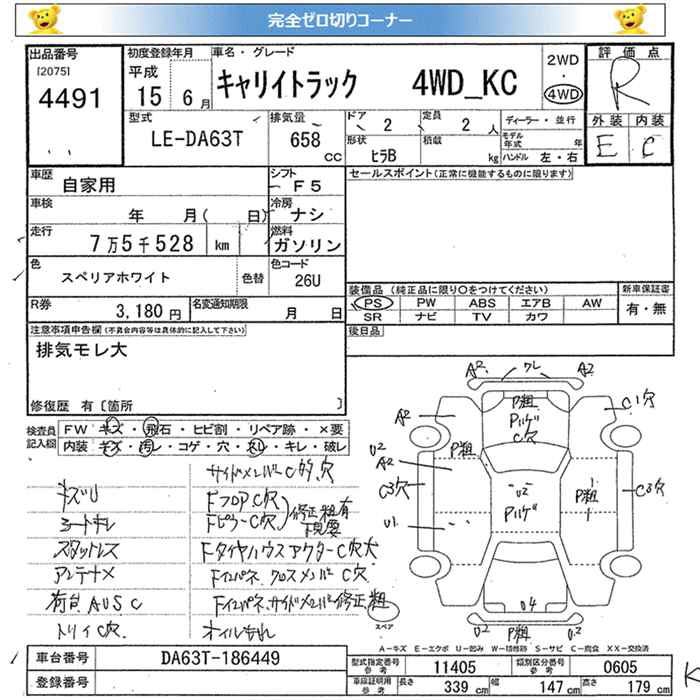 完全ゼロ切りコーナー
出品番号
[2075]
4491
初度登録年月
平成
15 6月
車名・グレード
キャリイトラック 4WD_KC
2WD
・
4WD
評価点
R
外装 内装
E C
型式
LE-DA63T
排気量
658
CC
ドア
2
定員
2 人
ディーラー・並行
モデル年式 年
形状
ヒラB
積載
kg
ハンドル 左・右
車歴
自家用
シフト
F5
セールスポイント(正常に機能するものに限ります)
車検
年 月( 日)
冷房
ナシ
走行
7万5千528 km
燃料
ガソリン
色
スペリアホワイト
色替
色コード
26U
装備品(純正品に限り○をつけてください)
PS PW ABS エアB AW
SR ナビ TV カワ
新車保証書
有・無
R券
3,180 円
名変通知期限
月 日
後日品
注意事項申告欄(不具合内容等は具体的に記入して下さい)
排気モレ大
修復歴 有〔箇所 〕
検査員記入欄
FW キズ・飛石・ヒビ割・リペア跡・×要
内装 キズ・汚レ・コゲ・穴・スレ・キレ・破レ
サイドメンバーC的穴
キズU
FフロアC穴
シートキレ
FピラーC穴
修正粗有
下見要
スタットレス
FタイヤハウスアウターC穴大
アンテナメ
Fインパネ、クロスメンバーC穴
荷台AUSC
Fインパネ、サイドメンバー修正粗
トリイC穴
オイルもれ
A2 ワレ A2
A2
P粗
Pハゲ
C穴
C1穴
U2
A2
P粗
C3穴
U2
Pハゲ
P粗
C3穴
U1
U4
U2 P粗 U2
スペア
A-キズ E-エクボ U-凹み W-補修跡 S-サビ C-腐食 XX-交換済
車台番号
DA63T-186449
登録番号
型式指定番号
参考
11405
類別区分番号
参考
0605
車検証明書
参考
長さ 339 cm
幅 147 cm
高さ 179 cm
K